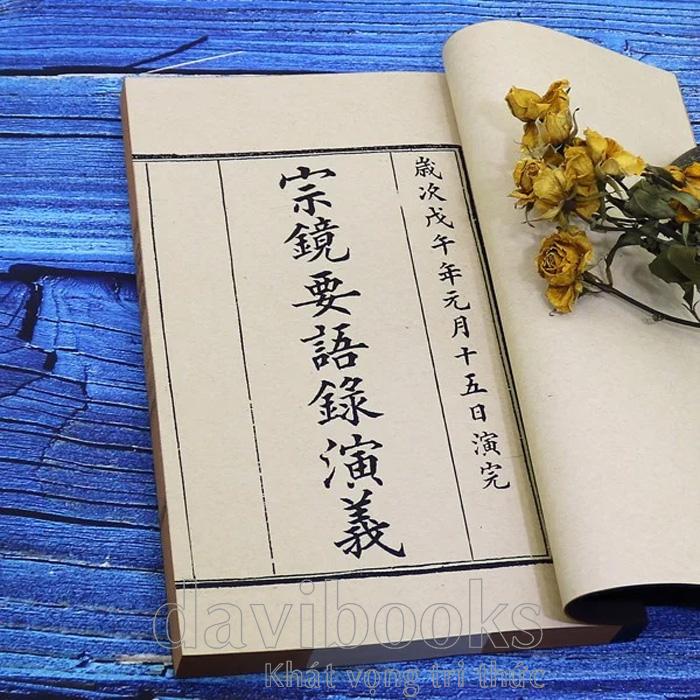 歲次戊午年元月十五日演完
宗鏡要語錄演義
davibooks
Khát vọng tri thức